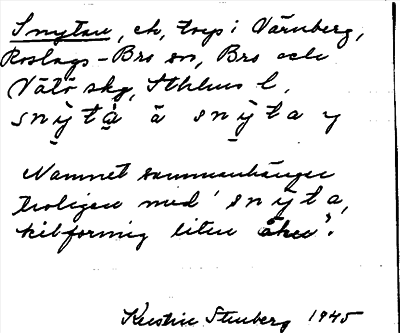 Snytan, ch, torp i Värnberg,
Roslags-Bro sn, Bro och
Vätö skg, Sthlms l.
snỳtạ̀ ä snỳta y
Namnet sammanhänger
troligen med 'snỳta,
kilformig liten åker'.
Kerstin Stenberg 1945